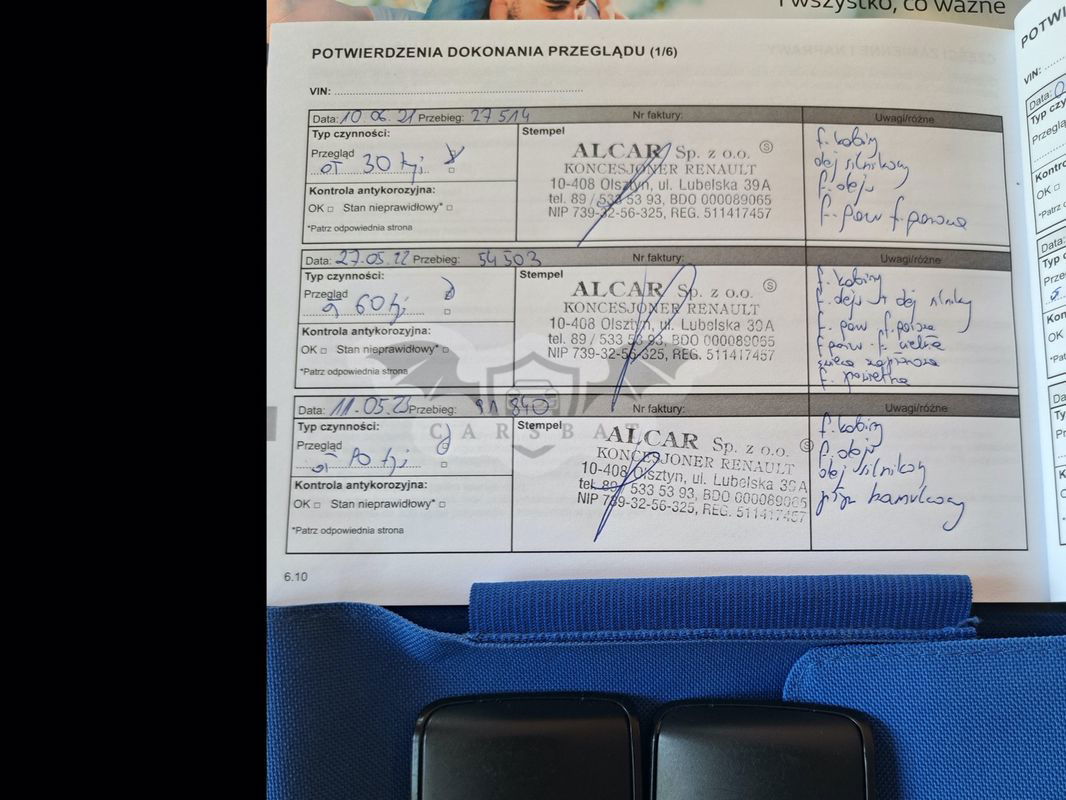 i wszystko, co ważne
POTWIERDZENIA DOKONANIA PRZEGLĄDU (1/6)
VIN:
Data: 10.06.21 Przebieg: 27 514 Nr faktury: Uwagi/różne
Typ czynności: Stempel
Przegląd
OT 30 tyś
Kontrola antykorozyjna:
OK Stan nieprawidłowy*
*Patrz odpowiednia strona
ALCAR Sp. z o.o.
KONCESJONER RENAULT
10-408 Olsztyn, ul. Lubelska 39A
tel. 89 / 533 53 93, BDO 000089065
NIP 739-32-56-325, REG. 511417457
f. kabiny
olej silnikowy
f. oleju
f. paw
Data: 27.05.22 Przebieg: 54 503 Nr faktury: Uwagi/różne
Typ czynności: Stempel
Przegląd
60 tyś
Kontrola antykorozyjna:
OK Stan nieprawidłowy*
*Patrz odpowiednia strona
ALCAR Sp. z o.o.
KONCESJONER RENAULT
10-408 Olsztyn, ul. Lubelska 39A
tel. 89 / 533 53 93, BDO 000089065
NIP 739-32-56-325, REG. 511417457
f. kabiny
f. oleju olej silnikowy
Data: 11.05.23 Przebieg: 91 840 Nr faktury: Uwagi/różne
Typ czynności: Stempel
Przegląd
Kontrola antykorozyjna:
OK Stan nieprawidłowy*
*Patrz odpowiednia strona
ALCAR Sp. z o.o.
KONCESJONER RENAULT
10-408 Olsztyn, ul. Lubelska 39A
tel. 89 / 533 53 93, BDO 000089065
NIP 739-32-56-325, REG. 511417457
f. kabiny
f. oleju
olej silnikowy
płyn hamulcowy
CARSBAT
6.10